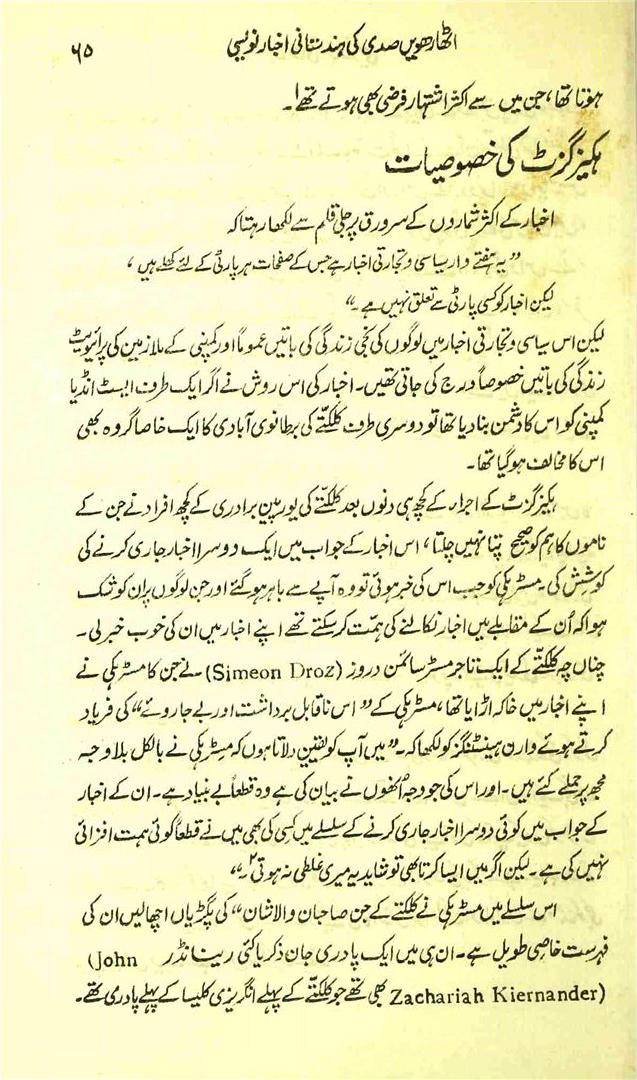 اٹھارھویں صدی کی ہندستانی اخبار نویسی ۶۵
ہوتا تھا، جن میں سے اکثر اشتہار فرضی بھی ہوتے تھے۱۔
ہکیز گزٹ کی خصوصیات
اخبار کے اکثر شماروں کے سرورق پر جلی قلم سے لکھا رہتا کہ
”یہ ہفتے وار سیاسی و تجارتی اخبار ہے جس کے صفحات ہر پارٹی کے لئے کھلے ہیں،
لیکن اخبار کو کسی پارٹی سے تعلق نہیں ہے۔“
لیکن اس سیاسی و تجارتی اخبار میں لوگوں کی نجی زندگی کی باتیں عموماً اور کمپنی کے ملازمین کی پرائیویٹ
زندگی کی باتیں خصوصاً درج کی جاتی تھیں۔ اخبار کی اس روش نے اگر ایک طرف ایسٹ انڈیا
کمپنی کو اس کا دشمن بنا دیا تھا تو دوسری طرف کلکتّے کی برطانوی آبادی کا ایک خاصا گروہ بھی
اس کا مخالف ہو گیا تھا۔
ہکیز گزٹ کے اجراء کے کچھ ہی دنوں بعد کلکتّے کی یورپین برادری کے کچھ افراد نے جن کے
ناموں کا ہم کو صحیح پتا نہیں چلتا، اس اخبار کے جواب میں ایک دوسرا اخبار جاری کرنے کی
کوشش کی۔ مسٹر ہکی کو جب اس کی خبر ہوئی تو وہ آپے سے باہر ہو گئے اور جن لوگوں پر ان کو شک
ہوا کہ اُن کے مقابلے میں اخبار نکالنے کی ہمّت کر سکتے تھے اپنے اخبار میں ان کی خوب خبر لی۔
چناں چہ کلکتّے کے ایک تاجر مسٹر سائمن دروز (Simeon Droz) نے جن کا مسٹر ہکی نے
اپنے اخبار میں خاکہ اڑایا تھا، مسٹر ہکی کے ”اس ناقابل برداشت اور بے جا رویے“ کی فریاد
کرتے ہوئے وارن ہیسٹنگز کو لکھا کہ۔ ”میں آپ کو یقین دلاتا ہوں کہ مسٹر ہکی نے بالکل بلا وجہ
مجھ پر حملے کئے ہیں۔ اور اس کی جو وجہ اُنھوں نے بیان کی ہے وہ قطعاً بے بنیاد ہے۔ ان کے اخبار
کے جواب میں کوئی دوسرا اخبار جاری کرنے کے سلسلے میں کسی کی بھی میں نے قطعاً کوئی ہمت افزائی
نہیں کی ہے۔ لیکن اگر میں ایسا کرتا بھی تو شاید یہ میری غلطی نہ ہوتی۲۔“
اس سلسلے میں مسٹر ہکی نے کلکتے کے جن صاحبان والا شان“ کی پگڑیاں اچھالیں ان کی
فہرست خاصی طویل ہے۔ ان ہی میں ایک پادری جان ذکریا کئی رینانڈر (John
Zachariah Kiernander) بھی تھے جو کلکتّے کے پہلے انگریزی کلیسا کے پہلے پادری تھے۔